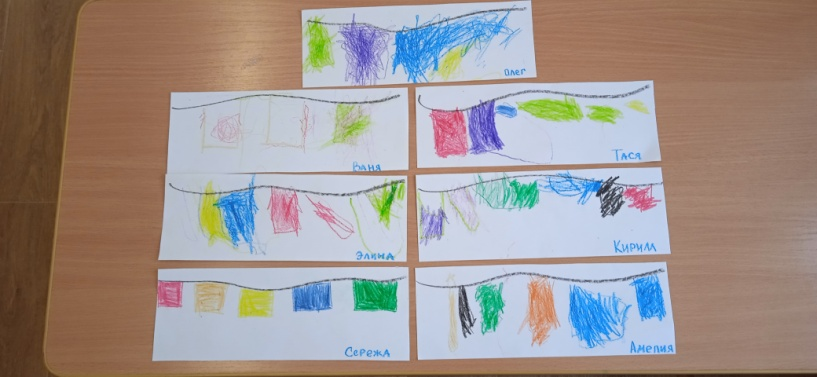 Олег
Ваня
Тася
Элина
Кирилл
Сережа
Амелия